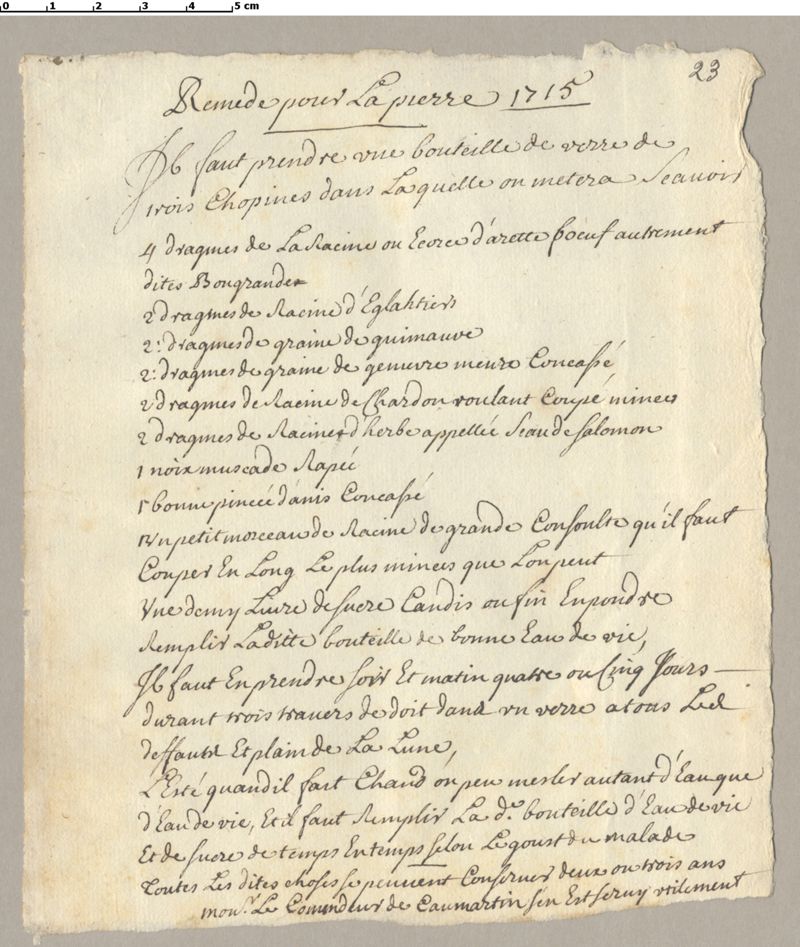 0 1 2 3 4 5 cm
23
Remede pour La pierre 1715
Il faut prendre vne bouteille de verre de
trois Chopines dans Laquelle on metera Scauoir
4 dragmes de La Racine ou Ecorce d'arette boeuf autrement
dites Bougrande
2 dragmes de Racine d'Eglantiers
2: dragmes de graine de guimauve
2: dragmes de graine de genievre meure Concassé
2 dragmes de Racine de Chardon roulant Coupé minces
2 dragmes de Racines d'herbe appellée Seau de Salomon
1 noix muscade Rapée
1 bonne pincée d'anis Concassé
Vn petit morceau de Racine de grande Consoulte qu'il faut
Couper En Long Le plus minces que Lon peut
Vne demy Livre de sucre Candis ou fin En poudre
Remplir Laditte bouteille de bonne Eau de vie,
Il faut En prendre soir Et matin quatre ou Cinq Jours
durant trois travers de doit dans vn verre a tous Les
deffauts Et plain de La Lune,
L'Esté quand il fait Chaud on peu mesler autant d'Eau que
d'Eau de vie, Et il faut Remplir La d.e bouteille d'Eau de vie
Et de sucre de temps En temps selon Le goust du malade
Toutes Les dites choses se peuuent Conseruer deux ou trois ans
mon.r Le Comndeur de Caumartin s'en Est seruy vtilement